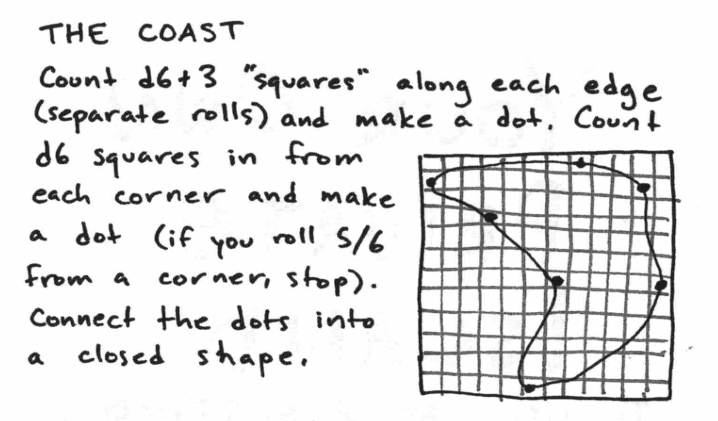 THE COAST
Count d6+3 "squares" along each edge
(separate rolls) and make a dot. Count
d6 squares in from
each corner and make
a dot (if you roll 5/6
from a corner, stop).
Connect the dots into
a closed shape.